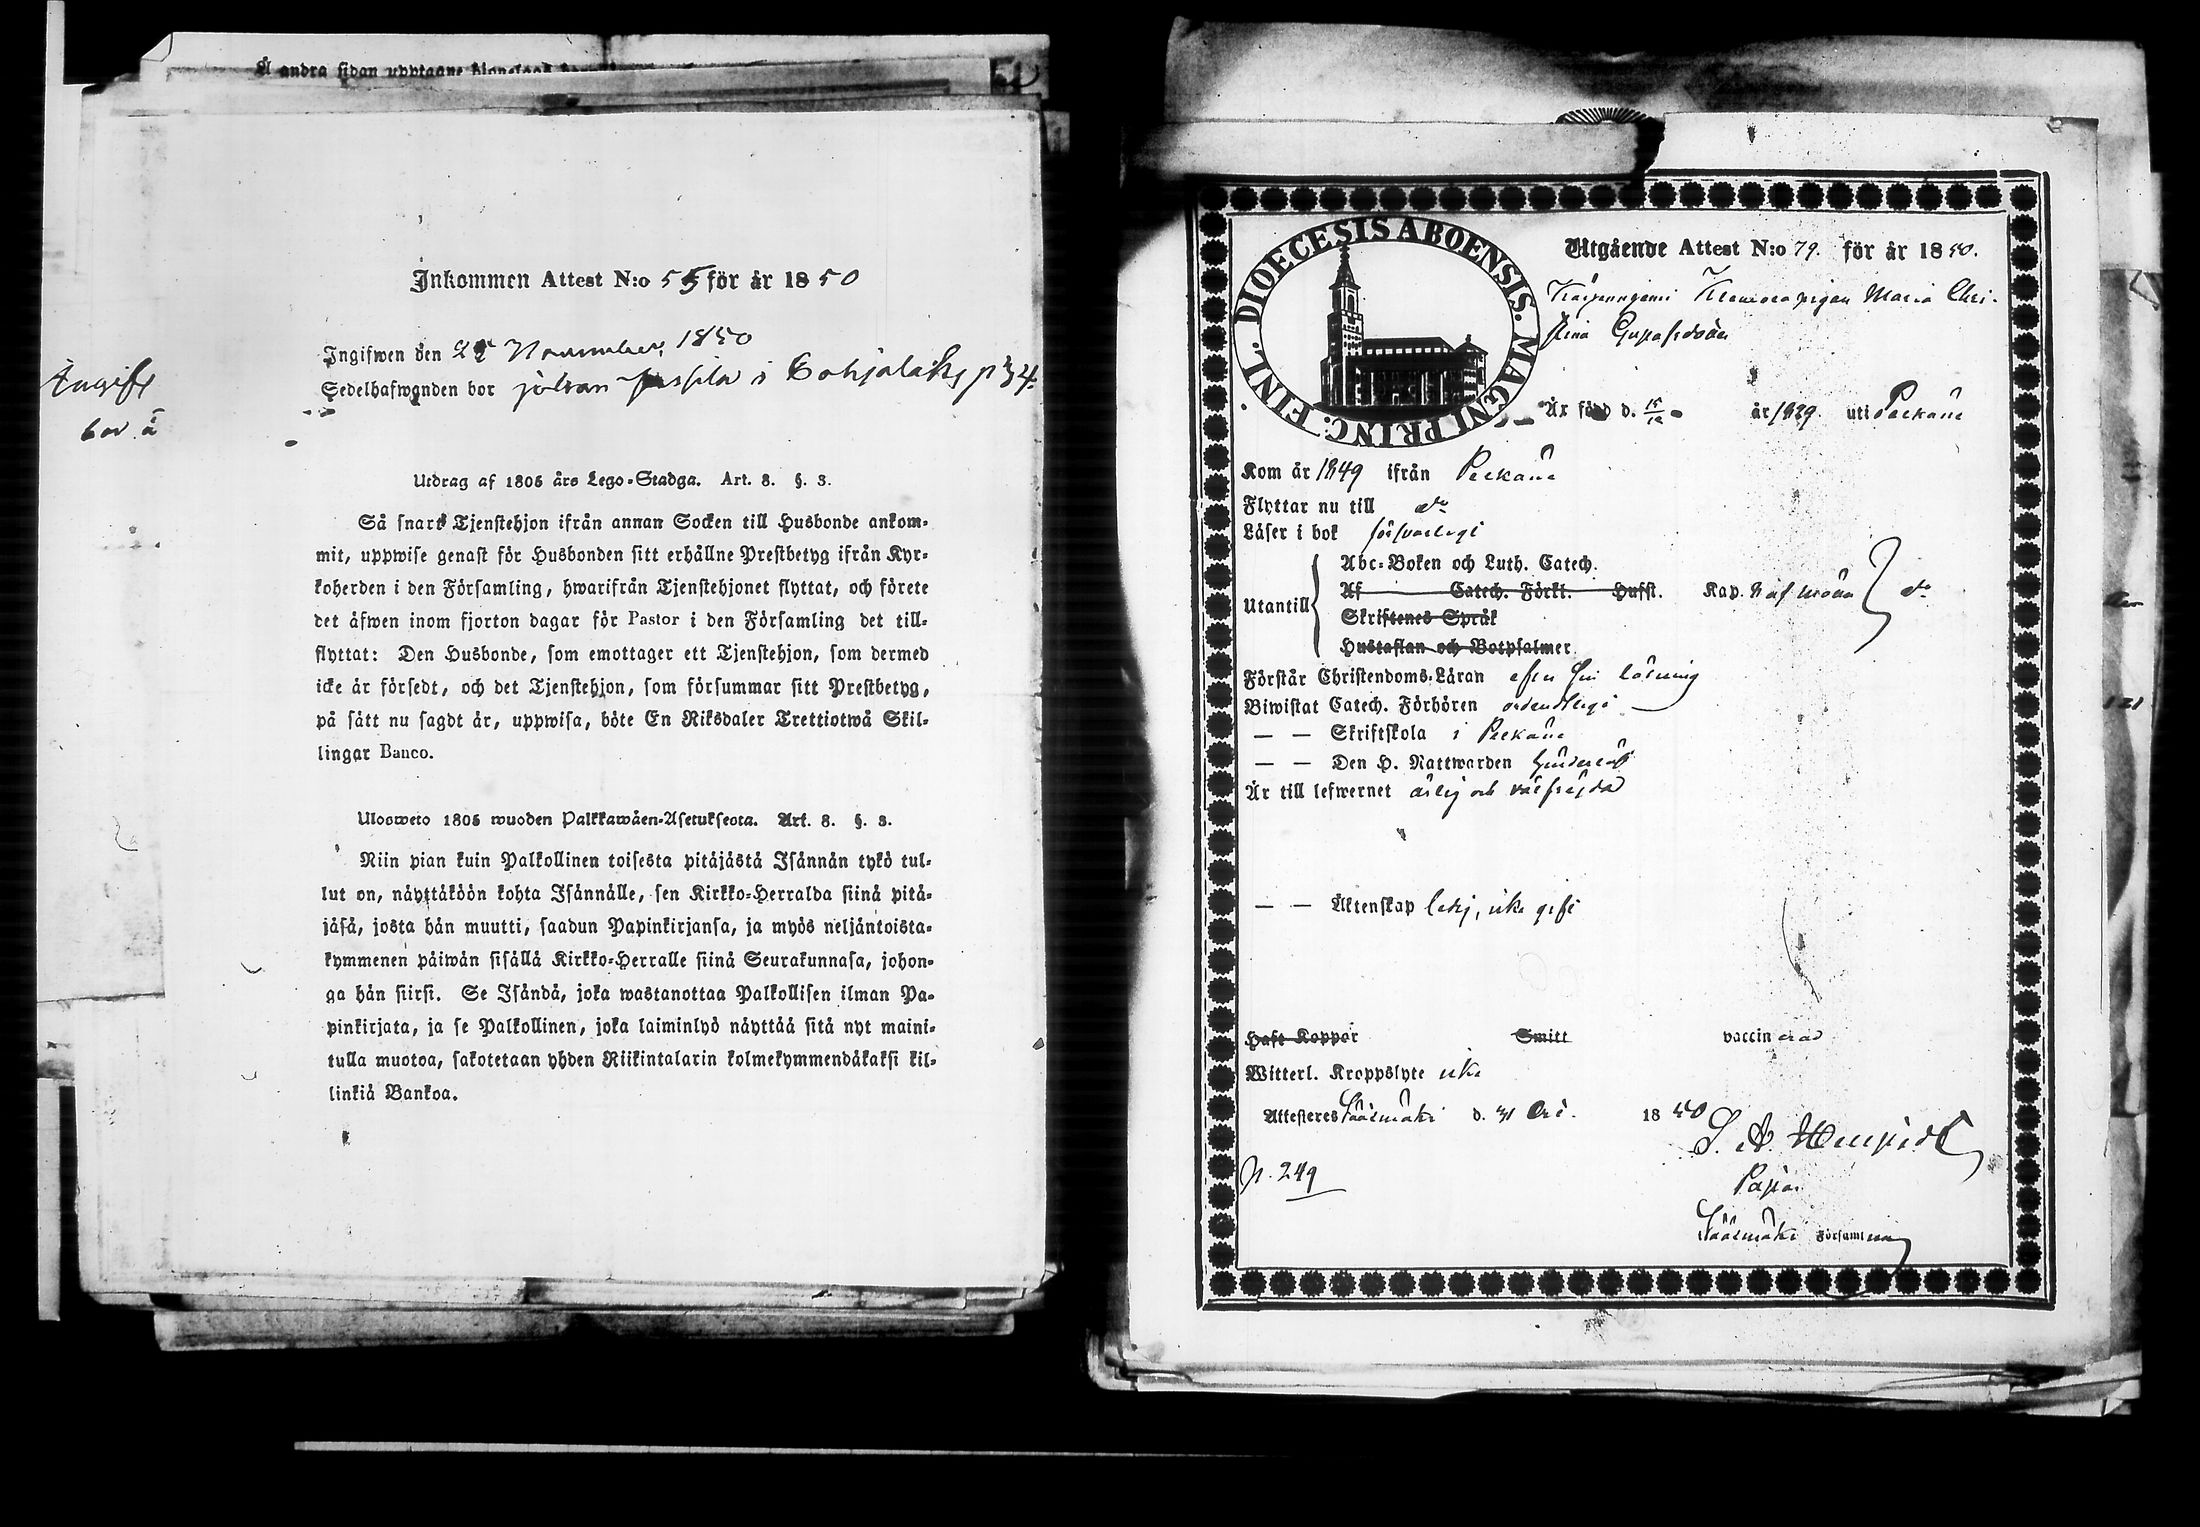 Å andra sidan upptagne
Inkommen Attest N:o 55 för år 1850
Ingifwen den 25 November 1850
Sedelhafwanden bor på Jussila i Pohjalaks p 34.
Ingift
bor å
Utdrag af 1805 års Lego-Stadga. Art. 8. §. 3.
Så snart Tjenstehjon ifrån annan Socken till Husbonde ankom-
mit, uppwise genast för Husbonden sitt erhållne Prestbetyg ifrån Kyr-
koherden i den Församling, hwarifrån Tjenstehjonet flyttat, och förete
det äfwen inom fjorton dagar för Pastor i den Församling det till-
flyttat: Den Husbonde, som emottager ett Tjenstehjon, som dermed
icke är försedt, och det Tjenstehjon, som försummar sitt Prestbetyg,
på sätt nu sagdt är, uppwisa, böte En Riksdaler Trettiotwå Skil-
lingar Banco.
Ulosweto 1805 wuoden Palkkawäen-Asetuksesta. Art. 8. §. 3.
Niin pian kuin Palkollinen toisesta pitäjästä Isännän tykö tul-
lut on, näyttäköön kohta Isännälle, sen Kirkko-Herralda siinä pitä-
jäsä, josta hän muutti, saadun Papinkirjansa, ja myös neljäntoista-
kymmenen päiwän sisällä Kirkko-Herralle siinä Seurakunnasa, johon-
ga hän siirsi. Se Isändä, joka wastanottaa Palkollisen ilman Pa-
pinkirjata, ja se Palkollinen, joka laiminlyö näyttää sitä nyt maini-
tulla muotoa, sakotetaan yhden Riikintalarin kolmekymmendäkaksi kil-
linkiä Bankoa.
DIOECESIS ABOENSIS. MAGNI PRINC. FINL.
Utgående Attest N:o 79. för år 1850.
Maria Chri-
stina Gustafsdotter
Är född d. 15/12 år 1829 uti Pelkäne
Kom år 1849 ifrån Pelkäne
Flyttar nu till do
Läser i bok försvarligt
Utantill
Abc-Boken och Luth. Catech.
Af Catech. Förkl. Hufst. Kap. do
Skriftenes Språk
Hustaflan och Botpsalmer
Förstår Christendoms-Läran efter sin läsning
Biwistat Catech. Förhören ordentligt
— — Skriftskola i Pelkäne
— — Den H. Nattwarden
Är till lefwernet ärlig och välfrejdad
— — Äktenskap ledig, icke gift
Haft Koppor Smitt vaccinerad
Witterl. Kroppslyte icke
Attesteres Sääksmäki d. 31 Oct. 1850
p. 249
Pastor
Sääksmäki Församling